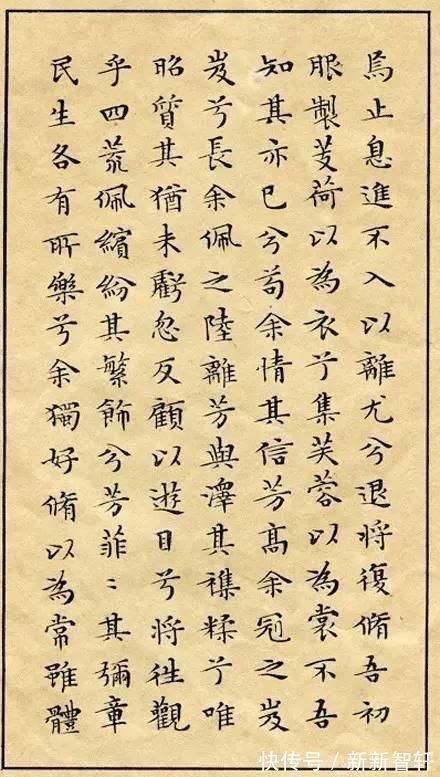 焉止息進不入以離尤兮退將復脩吾初
服製芰荷以為衣兮集芙蓉以為裳不吾
知其亦已兮苟余情其信芳高余冠之岌
岌兮長余佩之陸離芳與澤其襍糅兮唯
昭質其猶未虧忽反顧以遊目兮將往觀
乎四荒佩繽紛其繁飾兮芳菲〻其彌章
民生各有所樂兮余獨好脩以為常雖體
快传号／新新智轩